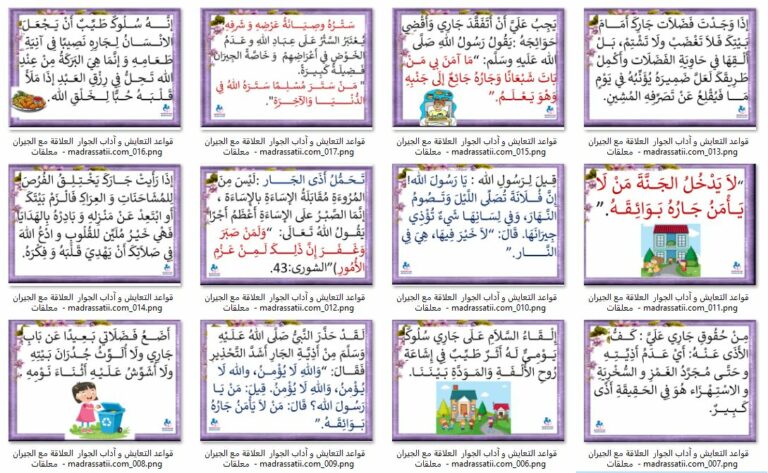 إذَا وَجَدْتَ فَضَلَاتِ جَارِكَ أَمَامَ
بَيْتِكَ فَلاَ تَغْضَبْ وَلاَ تَشْتِمْ، بَـلْ
أَلْـقِـهَا فـي حَاوِيَةِ الفَضَلَات وَأَكْمِلْ
طَرِيقَكَ لَعَلَّ ضَمِيرَهُ يُؤَنِّبُهُ فِي يَوْمٍ
مَـا فَيُقْلِعُ عَنْ تَصَرُّفِهِ المُشِينِ.
قواعد التعايش و آداب الجوار العلاقة مع الجيران
معلقات - madrassatii.com_013.png
يَجِبُ عَلَيَّ أَنْ أَتَفَقَّدَ جَارِي وَأَقْضِيَ
حَوَائِجَهُ :يَقُولُ رَسُولُ اللهِ صَلَّى
الله عَلَيهِ وسَلَّم: "مَا آمَنَ بِي مَـنْ
بَاتَ شَبْعَانًا وَجَارُهُ جَائِعٌ إِلَى جَنْبِهِ
وَهُوَ يَـعْـلَـمُ."
قواعد التعايش و آداب الجوار العلاقة مع الجيران
معلقات - madrassatii.com_015.png
سَتْـرُهُ وصِيَـانَةُ عَرْضِهِ وَ شَرَفِهِ
يُعْتَبَرُ السِّتْرُ عَلَى عِبَادِ اللهِ وَ عَـدَمُ
الخَوْضِ فِي أَعْرَاضِهِمْ وَ خَاصَّةً الجِيرَانَ
فَضِيلَةً كَبِيرَةً.
"مَـنْ سَتَـرَ مُسْلِمًـا سَتَـرَهُ اللهُ فِي
الـدُّنْيَـا وَالآخِـرَةِ."
قواعد التعايش و آداب الجوار العلاقة مع الجيران
معلقات - madrassatii.com_017.png
إنَّــهُ سُلُوكٌ طَـيِّبٌ أنْ يَـجْعَـلَ
الانْسَـانُ لِـجَارِهِ نَصِيبًا فِي آنِيَةِ
طَعَامِهِ وَ إِنَّمَا هِيَ البَرَكَةُ مِنْ عِنْدِ
اللهِ تَحِلُّ فِي رِزْقِ العَبْدِ إِذَا مَـلَأَ
قَـلْـبَـهُ حُبًّـا لِـخَـلْقِ الله.
قواعد التعايش و آداب الجوار العلاقة مع الجيران
معلقات - madrassatii.com_016.png
"لَا يَـدْخُـلُ الجَـنَّـةَ مَـنْ لَا
يَـأْمَـنُ جَـارُهُ بَـوَائِـقَـهُ."
قواعد التعايش و آداب الجوار العلاقة مع الجيران
معلقات - madrassatii.com_011.png
قِيلَ لِـرَسُولِ اللهِ : يَا رَسُولَ اللهِ!
إِنَّ فُـلَانَةَ تُصَلِّي اللَّيْلَ وَتَـصُـومُ
النَّـهَـارَ، وَفِـي لِسَانِـهَا شَـيْءٌ تُـؤْذِي
جِيرَانَهَا. قَالَ: "لاَ خَيْرَ فِيهَا، هِيَ فِي
النَّـــار."
قواعد التعايش و آداب الجوار العلاقة مع الجيران
معلقات - madrassatii.com_010.png
تَحَمُّلُ أَذَى الجَـــارِ :لَيْسَ مِنَ
المُرُوءَةِ مُقَابَلَةُ الإِسَاءَةِ بالإِسَاءَة ،
إِنَّمَا الصَّبْرُ عَلَى الإِسَاءَةِ أَعْظَمُ أَجْرًا
يَـقُـولُ اللهُ تَعَـالَى: "وَلَمَنْ صَبَرَ
وَغَـفَـرَ إِنَّ ذَلِـكَ لَـمِـنْ عَـزْمِ
الأُمُورِ)"الشورى:43.
قواعد التعايش و آداب الجوار العلاقة مع الجيران
معلقات - madrassatii.com_012.png
إذَا رَأَيْتَ جَـارَكَ يَخْـتَلِـقُ الفُرَصَ
لِلْمُشَاحَنَاتِ وَ العِرَاكِ فَالْـزَمْ بَيْتَكَ
أو ابْتَعِدْ عَنْ مَنْزِلِهِ وَ بَادِرْهُ بِالْهَدَايَا
فَهْيَ خَيْـرُ مُلَيِّنٍ لِلْقُلُوبِ و ادْعُ اللهَ
في صَلَاتِكَ أَنْ يَهْدِيَ قَلْبَهُ وَ فِكْرَهُ.
قواعد التعايش و آداب الجوار العلاقة مع الجيران
معلقات - madrassatii.com_014.png
مِـنْ حُقُوقِ جَارِي عَلَيَّ : كَـفُّ
الأَذَى عَنْـهُ: أَيْ عَـدَمُ أَذِيَّـتِـهِ
و حَتَّـى مُجَرَّدُ الغَمْزِ وَ السُّخْرِيَةِ
و الاسْتِهْـزَاءُ هُوَ فـي الحَـقِيقَةِ أَذًى
كَـبِـيـرٌ.
قواعد التعايش و آداب الجوار العلاقة مع الجيران
معلقات - madrassatii.com_007.png
إِلْـقَـاءُ السَّلاَمِ عَلَى جَارِي سُلُوكٌ
يَـوْمِـيٌّ لَـهُ أَثَـرٌ طَـيِّـبٌ فِـي إِشَاعَـةِ
رُوحِ الأُلْـفَـةِ وَالـمَـوَدَّةِ بَـيْـنَـنَـا.
قواعد التعايش و آداب الجوار العلاقة مع الجيران
معلقات - madrassatii.com_006.png
لَـقَـدْ حَذَّرَ النَّبِيُّ صَلَّى اللهُ عَلَـيْهِ
وَسَلَّمَ مِنْ أَذِيَّةِ الجَارِ أَشَدَّ التَّحْذِيرِ
فَقَالَ: "وَاللهِ لَا يُؤْمِنُ، وَالله لَا
يُـؤْمِنُ، وَاللهِ لَا يُؤْمِنُ. قِيلَ: مَنْ يَـا
رَسُولَ الله؟ قَالَ: مَنْ لاَ يَأْمَنُ جَارُهُ
بَـوَائِـقَـهُ."
قواعد التعايش و آداب الجوار العلاقة مع الجيران
معلقات - madrassatii.com_009.png
أَضَـعُ فَضَلَاتِي بَـعِيدًا عَن بَابِ
جَارِي وَلَا أُلَـوِّثُ جُـدْرَانَ بَـيْتِهِ
وَلَا أُشَوِّشُ عَلَـيْـهِ أَثْنَـاءَ نَـوْمِـهِ
قواعد التعايش و آداب الجوار العلاقة مع الجيران
معلقات - madrassatii.com_008.png